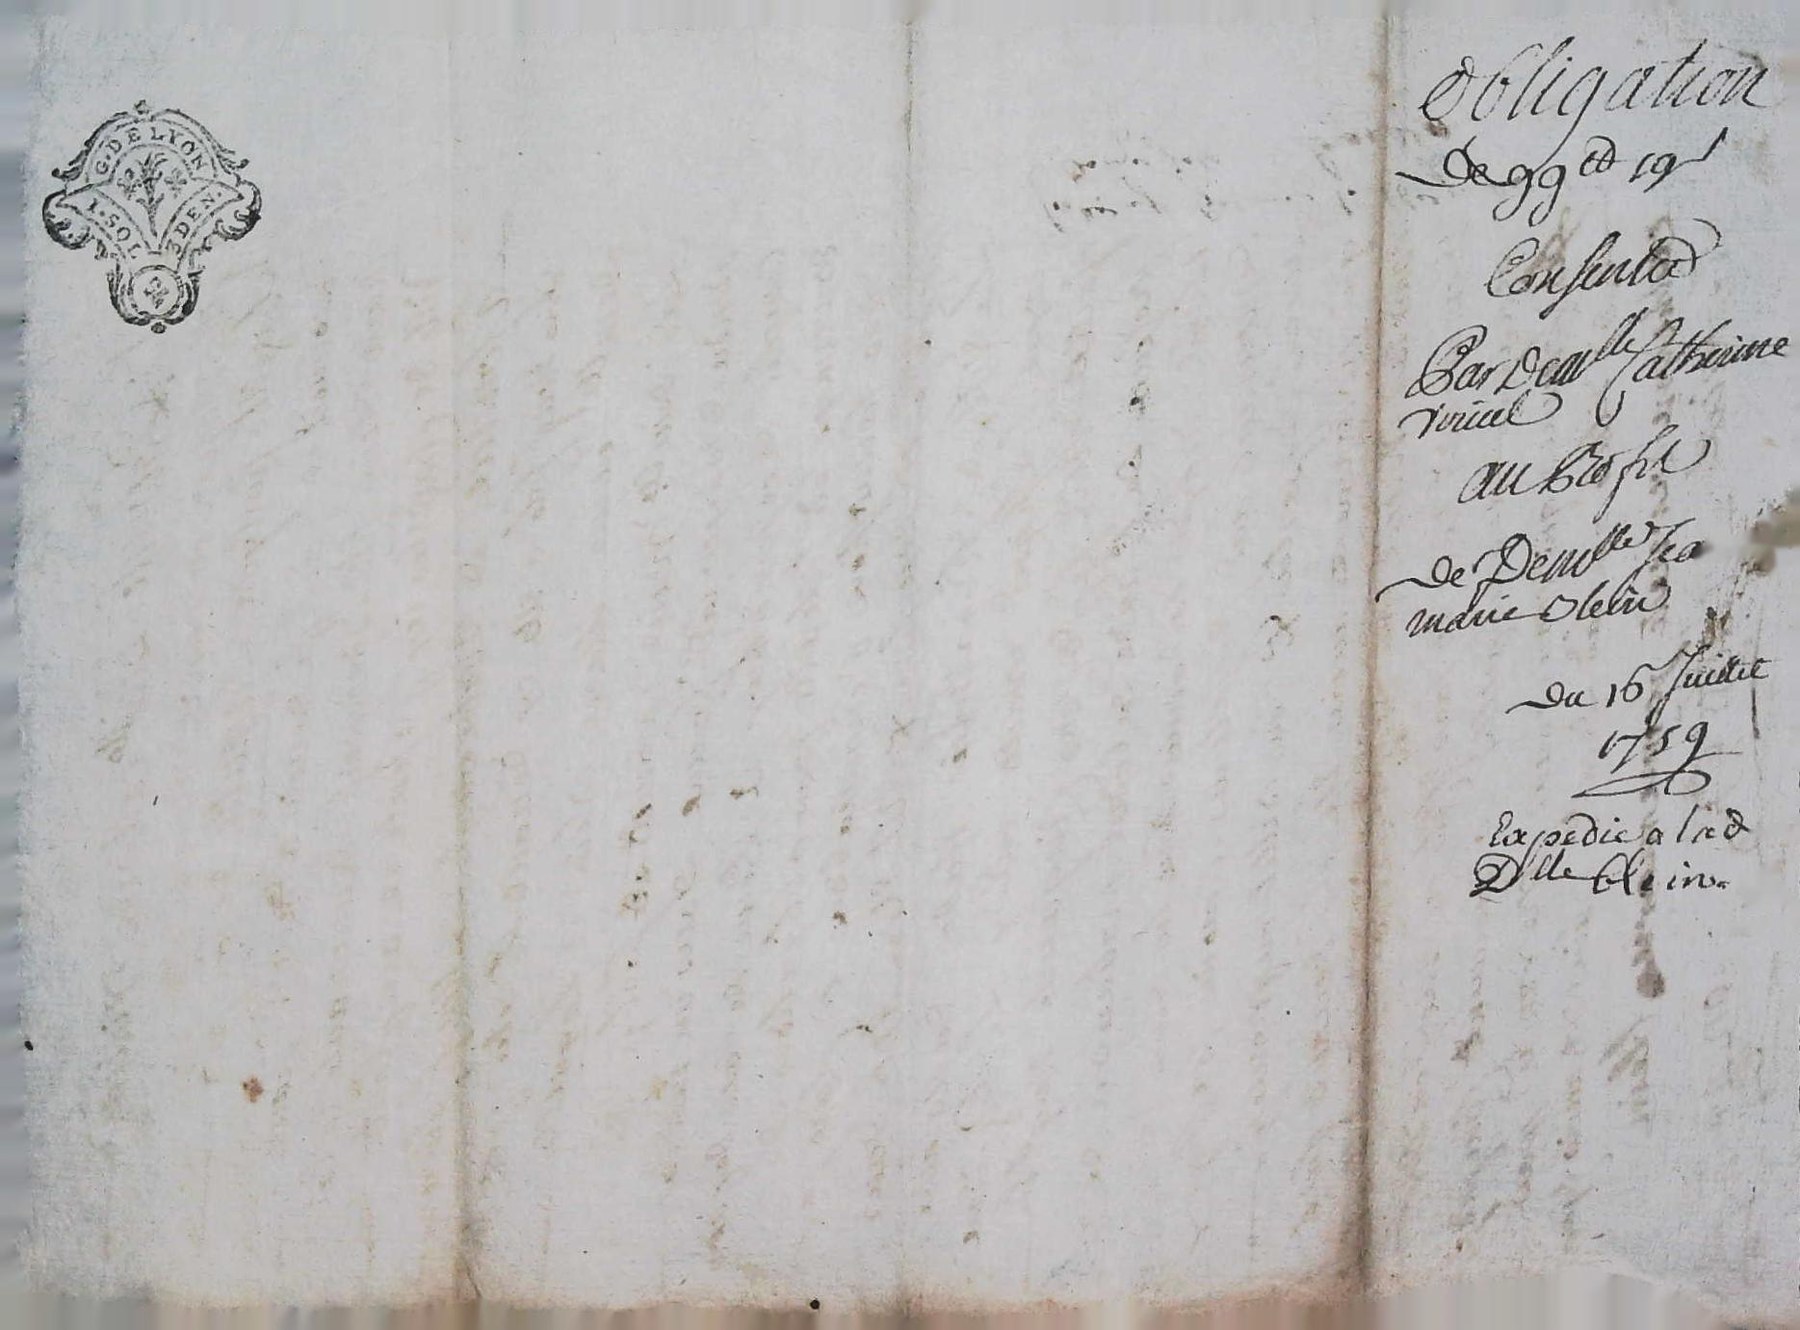 G. DE LYON
1. SOL 3 DEN.
Obligation
De 99 lt 19 s
Consentie
Par Demlle Catherine
viricel
au Profit
de Demlle Jea
marie Olein
du 16 Juillet
1759
Expedié a lad
Dlle Olein